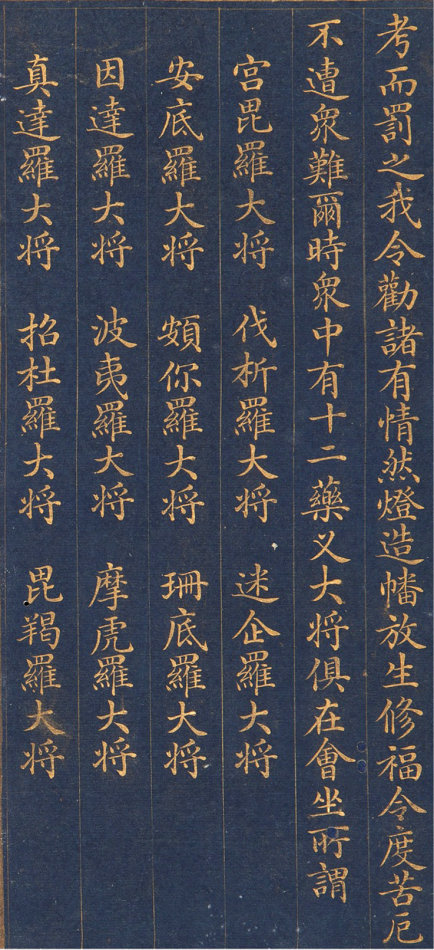 考而罰之我今勸諸有情然燈造幡放生修福令度苦厄
不遭衆難爾時衆中有十二藥叉大将俱在會坐所謂
宮毘羅大将 伐折羅大将 迷企羅大将
安底羅大将 頞你羅大将 珊底羅大将
因達羅大将 波夷羅大将 摩虎羅大将
真達羅大将 招杜羅大将 毘羯羅大将